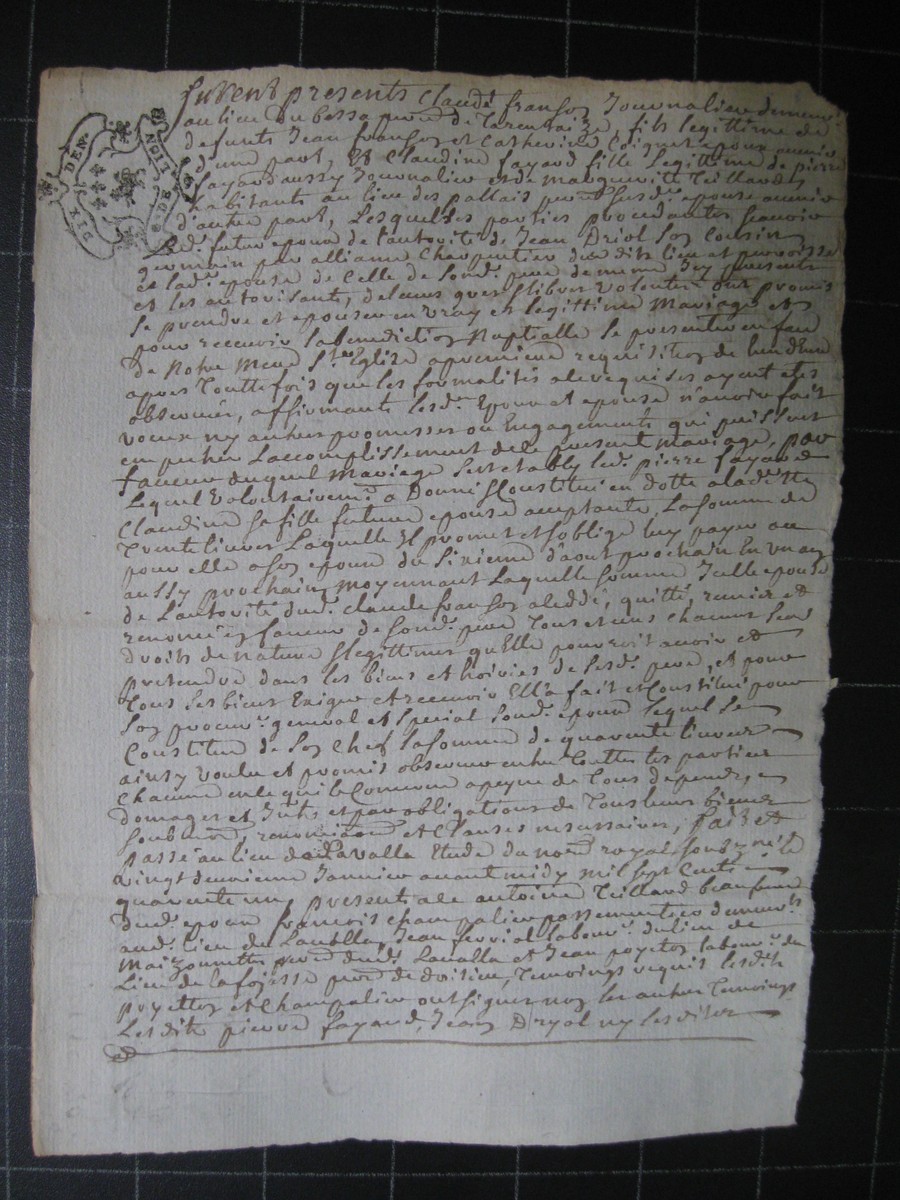 furent presents Claude françoz Journalier demeur.t
au lieu du bessa parr.e de Tarentaize, fils legittime de
deffunts Jean françoz et Catherine Coignet epoux avenir
d'une part, Et Claudine fayard fille Legittime de pierre
fayard aussy Journalier et de Marguerite Teillard
habitants au lieu des pallais parr.e susd.e epouse avenir
d'autre part, Lesquelles parties procedantes sçavoir
Led.t futur epoux de l'autorité de Jean Driol son Cousin
germain par alliance Charpentier dudits lieu et parroisse
et lad.e epouse de Celle de sond.t pere de meme Icy presents
et les autorisants, de leurs grés et libres volontés ont promis
se prendre et epouser en vray et legittime Mariage et
pour recevoir la benediction Nuptialle se presenter en face
de Notre Mere S.te Eglise a premiere requisition de l'un d'Eux
apres Touttefois que les formalités a ce requises ayent etés
observées, affirmants lesd.ts Epoux et epouse n'avoir fait
voeux ny autres promesses ou Engagements qui puissent
empecher L'accomplissement de le present Mariage, par
faveur duquel Mariage s'est etably led.t pierre fayard
Lequel volontairem.t a Donné et Constitué en dotte a laditte
Claudine sa fille future epouse acceptante La somme de
Trente livres Laquelle Il promet et s'oblige luy payer ou
pour elle a son epoux du sixieme d'aout prochain En un an
aussy prochain, Moyennant Laquelle somme Icelle epouse
de L'autorité dud.t Claude françoz a cedé, quitté, remis et
renoncé en faveur de sond.t pere Tous et uns chacuns ses
droits de nature et legittimes qu'Elle pourroit avoir et
pretendre dans les biens et hoiries de sesd.ts pere, et pour
Tous ses biens Exiger et recevoir Ell'a fait et Constitué pour
son procur.r general et special sond.t epoux lequel se
Constitue de son Chef la somme de quarente livres
ainsy voulu et promis observer entre Touttes les parties
chacune en ce qui la Concerne a peyne de Tous depends,
domages et Interets et par obligations de Tous leurs biens
soubmi.ons, renonciaons et Clauses necessaires, fait et
passé au lieu de Lavalla Etude du no.re royal soubzigné le
vingt deuxieme Janvier avant midy mil sept Cents
quarente un, presents a ce antoine Teillard beaufrere
dud.t epoux françois champalier passementier demeur.t
aud.t lieu de Lavalla, Jean ferriol labour.r du lieu de
Maizonnettes parr.e dud.t Lavalla et Jean poyeton labour.r du
Lieu de la fayesse parr.e de doisieu, Temoings requis lesd.ts
poyeton et Champalier ont signer non les autres Temoings
Lesdits pierre fayard, Jean Dryol ny lesdites
DIX DEN.
LION